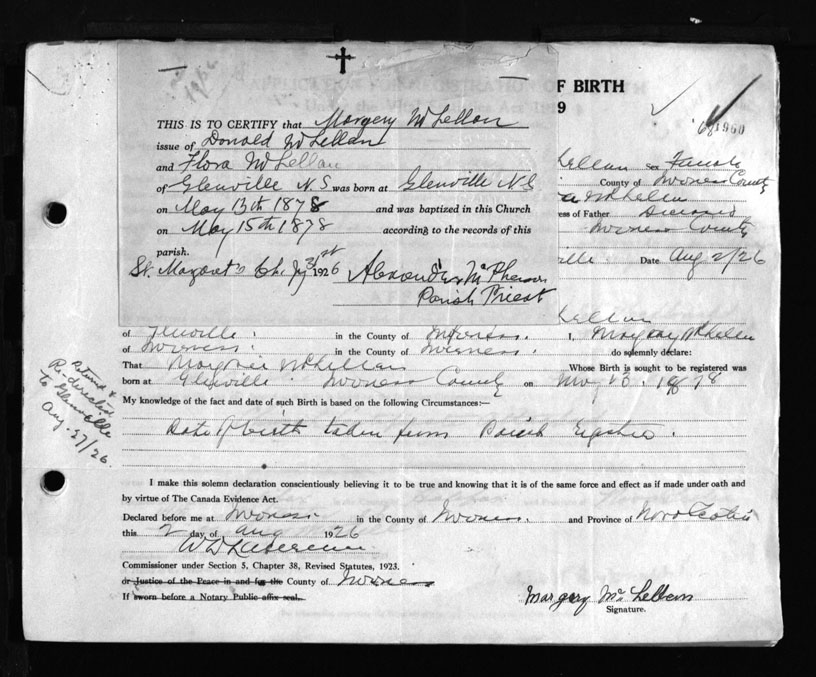 OF BIRTH
9
681960
THIS IS TO CERTIFY that Margery McLellan
issue of Donald McLellan
and Flora McLellan
of Glenville N S was born at Glenville N S
on May 13th 1878 and was baptized in this Church
on May 15th 1878 according to the records of this
parish.
St. Margaret's Ch. 31st 1926 Alexander McPherson
Parish Priest
Lellan sex Female
County of Inverness County
ess of Father
Inverness County
ville Date Aug 2/26
Lellan
of Glenville in the County of Inverness I,
of Inverness in the County of Inverness do solemnly declare:
That McLellan Whose Birth is sought to be registered was
born at Glenville Inverness County on May 1878
My knowledge of the fact and date of such Birth is based on the following Circumstances:—
Date of birth taken from Parish Register.
I make this solemn declaration conscientiously believing it to be true and knowing that it is of the same force and effect as if made under oath and
by virtue of The Canada Evidence Act.
Declared before me at Inverness in the County of Inverness and Province of Nova Scotia
this 2 day of Aug 1926
Commissioner under Section 5, Chapter 38, Revised Statutes, 1923.
or Justice of the Peace in and for the County of Inverness
If sworn before a Notary Public affix seal.
Margery McLellan
Signature.
Returned &
Re-directed
to Glenville
Aug. 27/26.